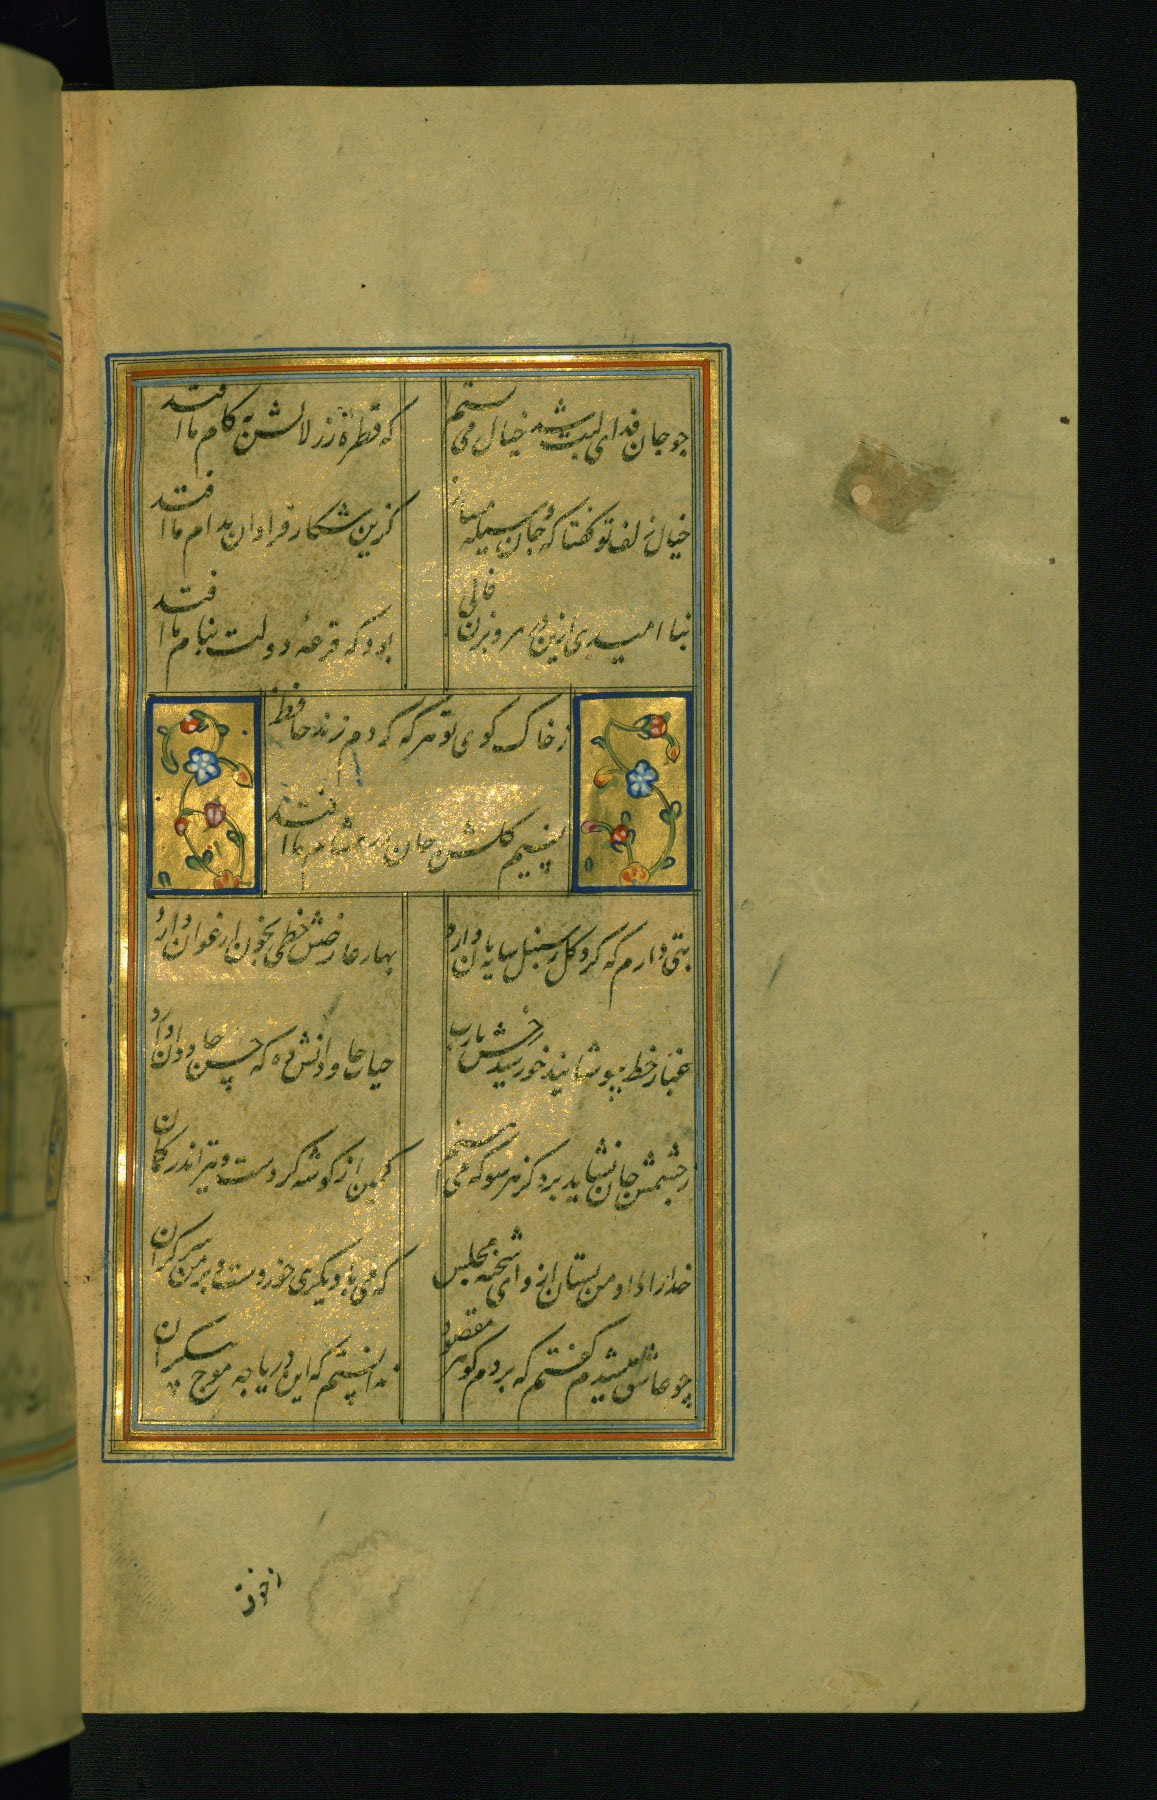 چو جان فدای لبت شد خیال می بستم
که قطرهٔ ز زلالش به کام ما افتد
خیال زلف تو گفتا که جان وسیله مساز
کزین شکار فراوان بدام ما افتد
بنا امیدی ازین در مرو بزن فالی
بود که قرعهٔ دولت بنام ما افتد
ز خاک کوی تو هر گه که دم زند حافظ
نسیم گلشن جان در مشام ما افتد
بتی دارم که گرد گل ز سنبل سایه بان دارد
بهار عارضش خطی بخون ارغوان دارد
غبار خط بپوشانید خورشید رخش یارب
حیات جاودانش ده که حسن جاودان دارد
ز چشمش جان نشاید برد کز هر سو که می بینم
کمین از گوشه کردست و تیر اندر کمان
خدا را داد من بستان ازو ای شحنه مجلس
که می با دیگری خوردست و بر من سرگران
چو عاشق میشدم گفتم که بردم گوهر مقصود
ندانستم که این دریا چه موج بیکران